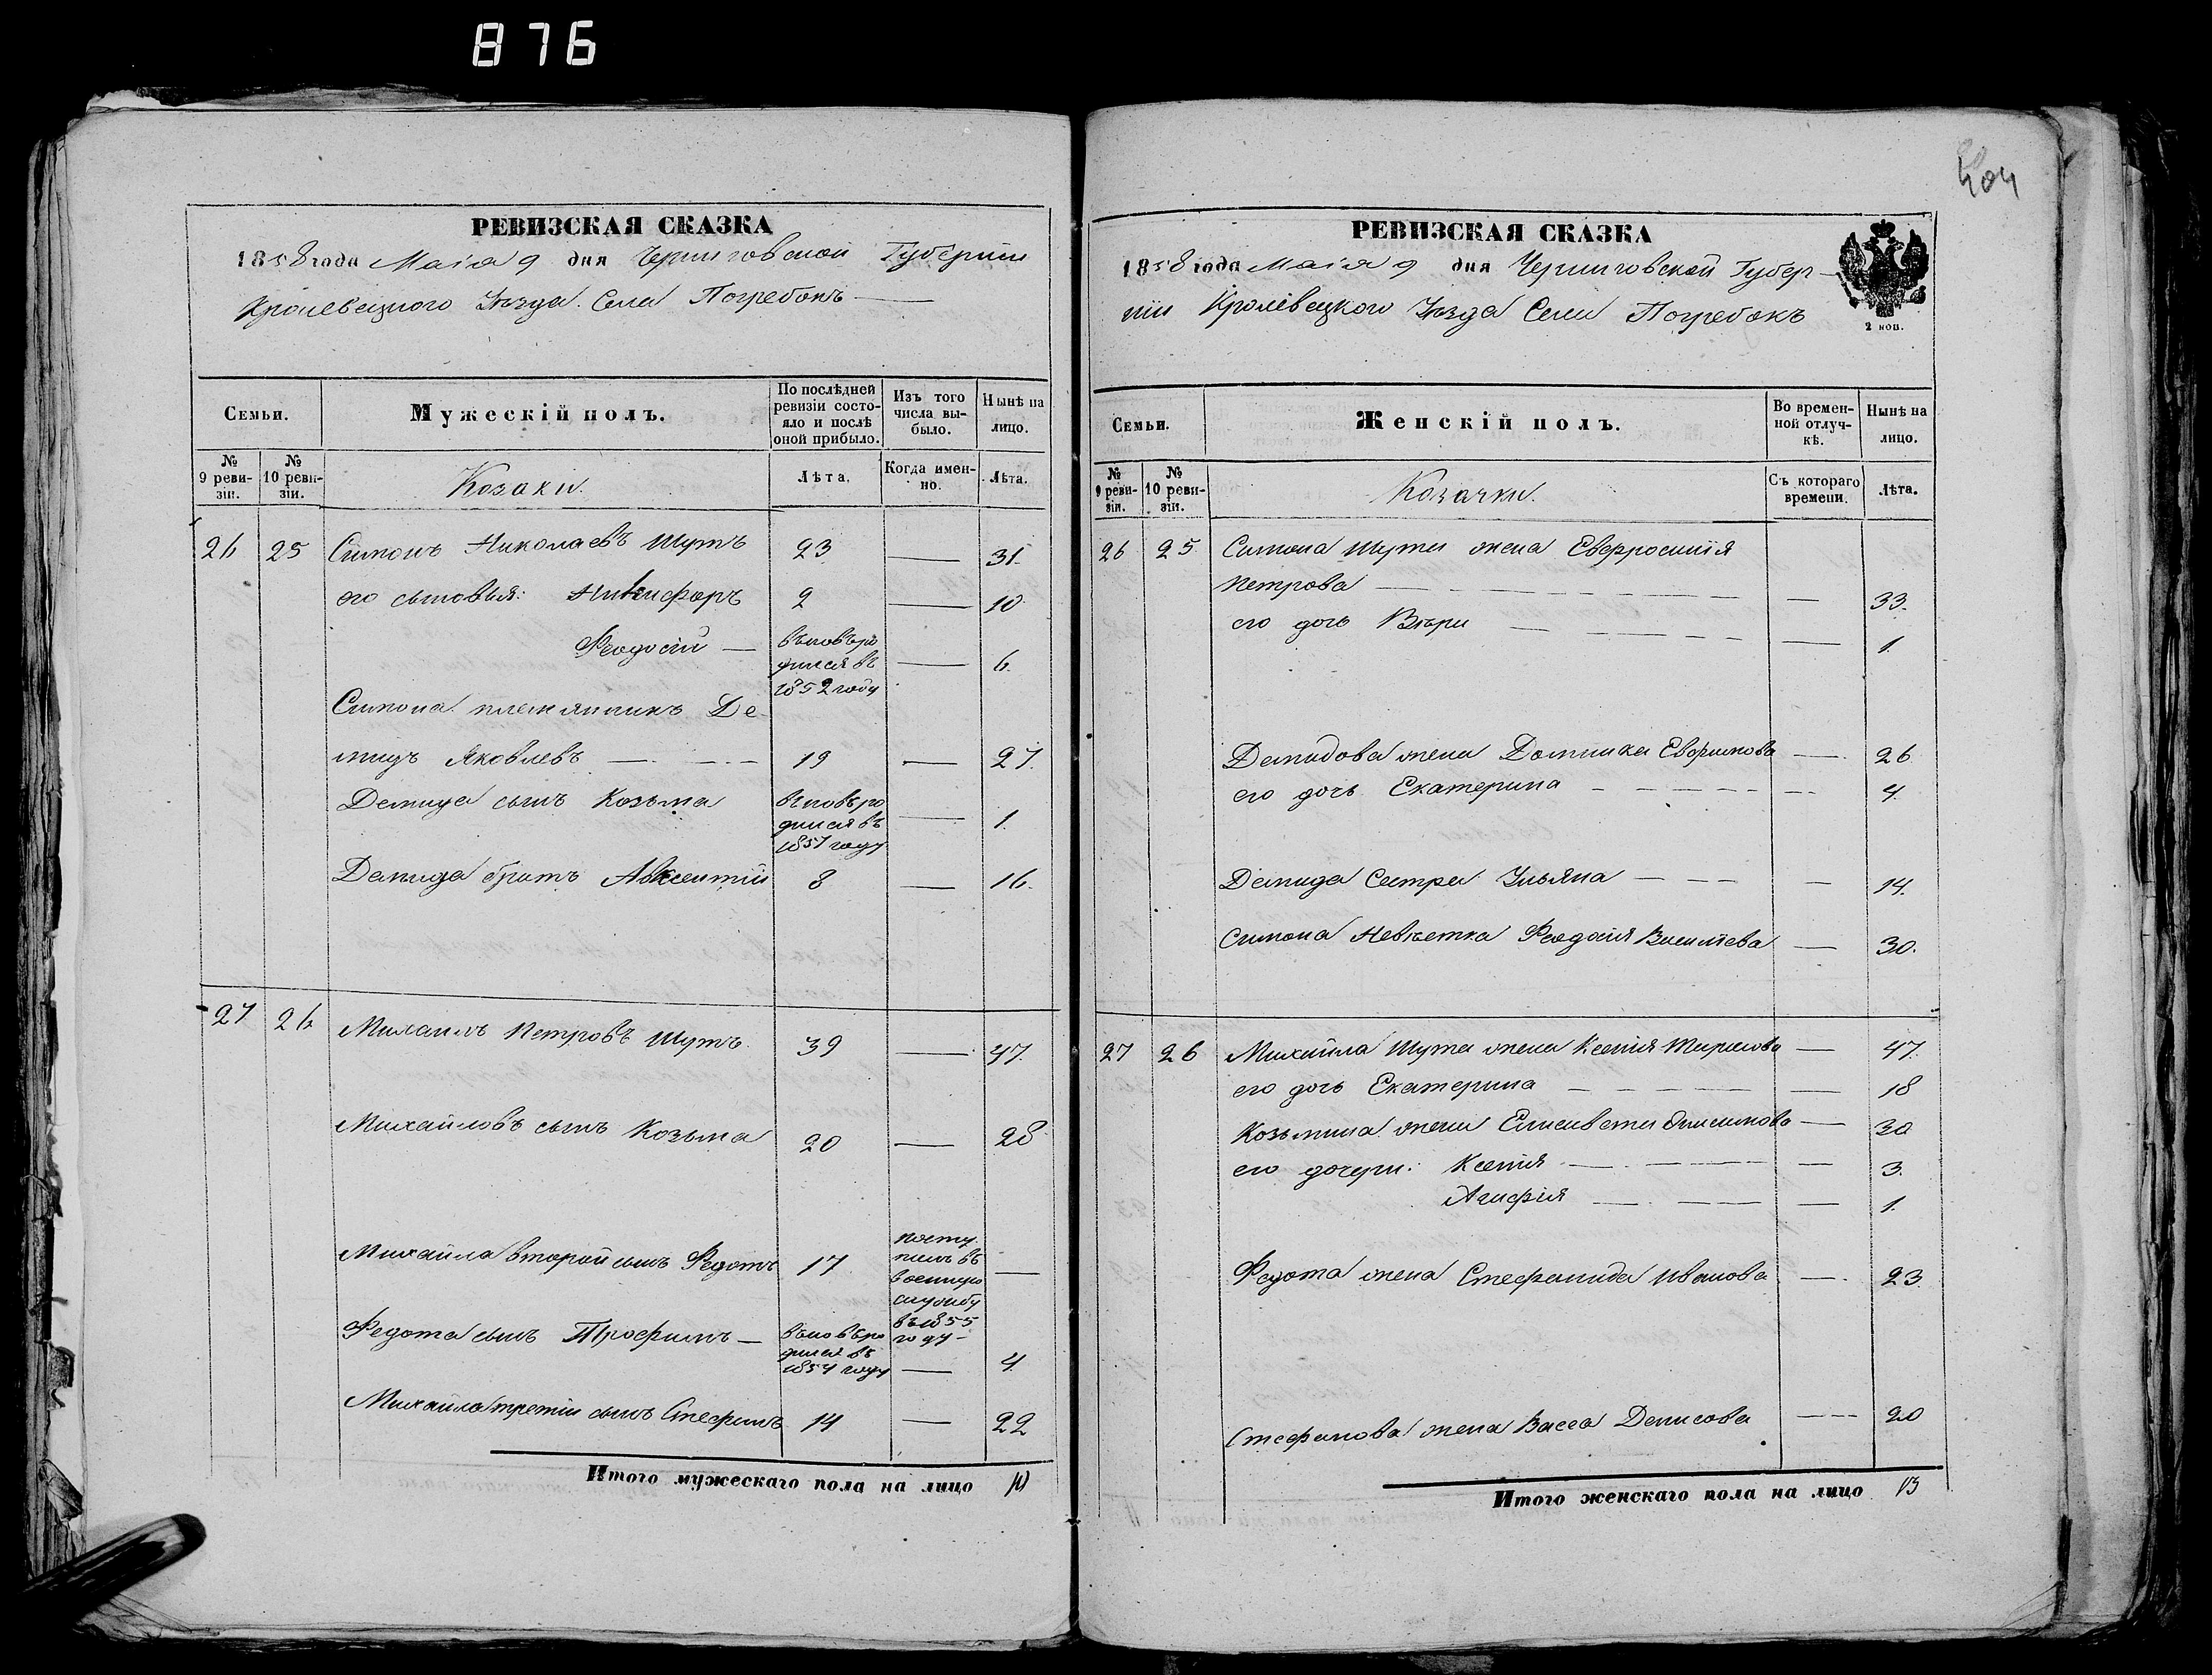 876
РЕВИЗСКАЯ СКАЗКА
1858 года Маія 9 дня Черниговской Губерніи
Кролевецкого Уѣзда Села Погребокъ
Семьи.
Мужескій полъ.
По послѣдней ревизіи состояло и послѣ оной прибыло.
Изъ того числа выбыло.
Нынѣ на лицо.
№ 9 ревизіи.
№ 10 ревизіи.
Козаки.
Лѣта.
Когда именно.
Лѣта.
26 25 Симонъ Николаевъ Шутъ 23 — 31.
его сыновья: Никифоръ 2 — 10
Феодосій — вновь ро
дился въ — 6.
1852 году
Симона племянникъ Де
мидъ Яковлевъ — 19 — 27.
Демида сынъ Козьма вновь ро
дился въ — 1.
1857 году
Демида братъ Авксентій 8 — 16.
27 26 Михаилъ Петровъ Шутъ. 39 — 47.
Михайловъ сынъ Козьма 20 — 28
Михайла второй сынъ Федотъ 17 посту
пилъ въ
военную —
службу
въ 1855
году
Федота сынъ Трофимъ — вновь ро
дился въ
1854 году — 4.
Михайла третій сынъ Стефанъ 14 — 22
Итого мужескаго пола на лицо 10
404
РЕВИЗСКАЯ СКАЗКА
1858 года Маія 9 дня Черниговской Губер-
ніи Кролевецкого Уѣзда Села Погребокъ
2 коп.
Семьи.
Женскій полъ.
Во временной отлучкѣ.
Нынѣ на лицо.
№ 9 ревизіи.
№ 10 ревизіи.
Козачки.
Съ котораго времени.
Лѣта.
26 25 Симона Шута жена Евфросинія
Петрова — — 33.
его дочь Вѣра — — 1.
Демидова жена Домника Евфимова — 26
его дочь Екатерина — — 4.
Демида Сестра Ульяна — — 14.
Симона Невѣстка Феодосія Васильева — 30.
27 26 Михайла Шута жена Ксенія Тарасова — 47.
его дочь Екатерина — — 18
Козьмина жена Елисавета — 30
его дочери: Ксенія — — 3.
Агафія — — 1.
Федота жена Стефанида Иванова — 23
Стефанова жена Васса Денисова — 20
Итого женскаго пола на лицо 13